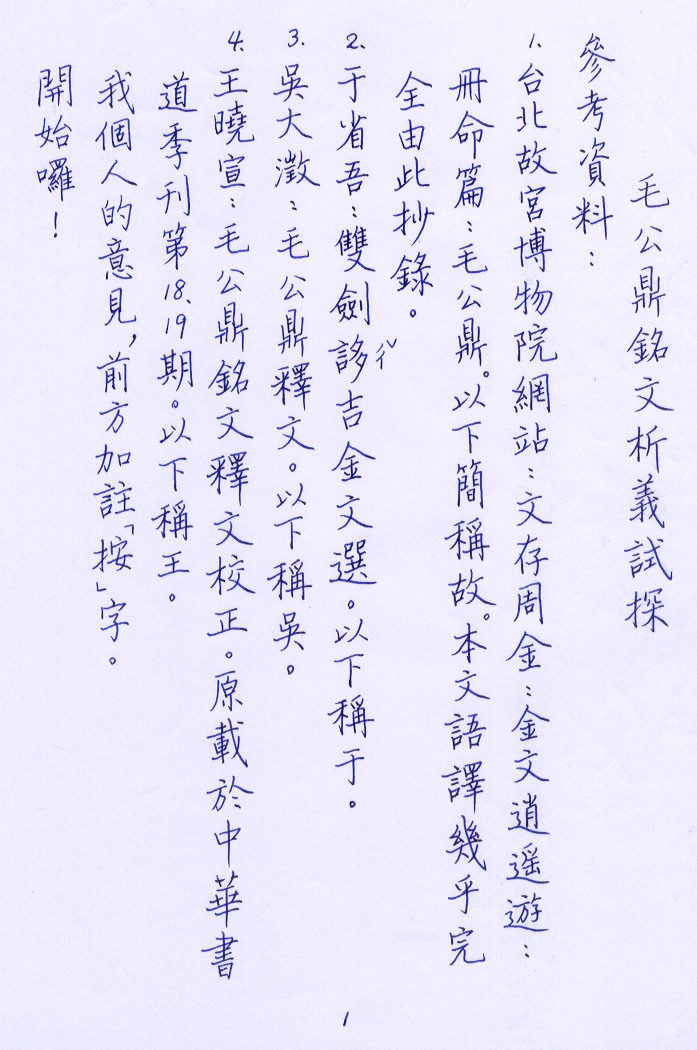 毛公鼎銘文析義試探
參考資料：
1.台北故宮博物院網站：文存周金：金文逍遥遊：
冊命篇：毛公鼎。以下簡稱故。本文語譯幾乎完
全由此抄錄。
2.于省吾：雙劍誃吉金文選。以下稱于。
ㄔˇ
3.吳大澂：毛公鼎釋文。以下稱吳。
4.王曉宣：毛公鼎銘文釋文校正。原載於中華書
道季刊第18、19期。以下稱王。
我個人的意見，前方加註「按」字。
開始囉！
1